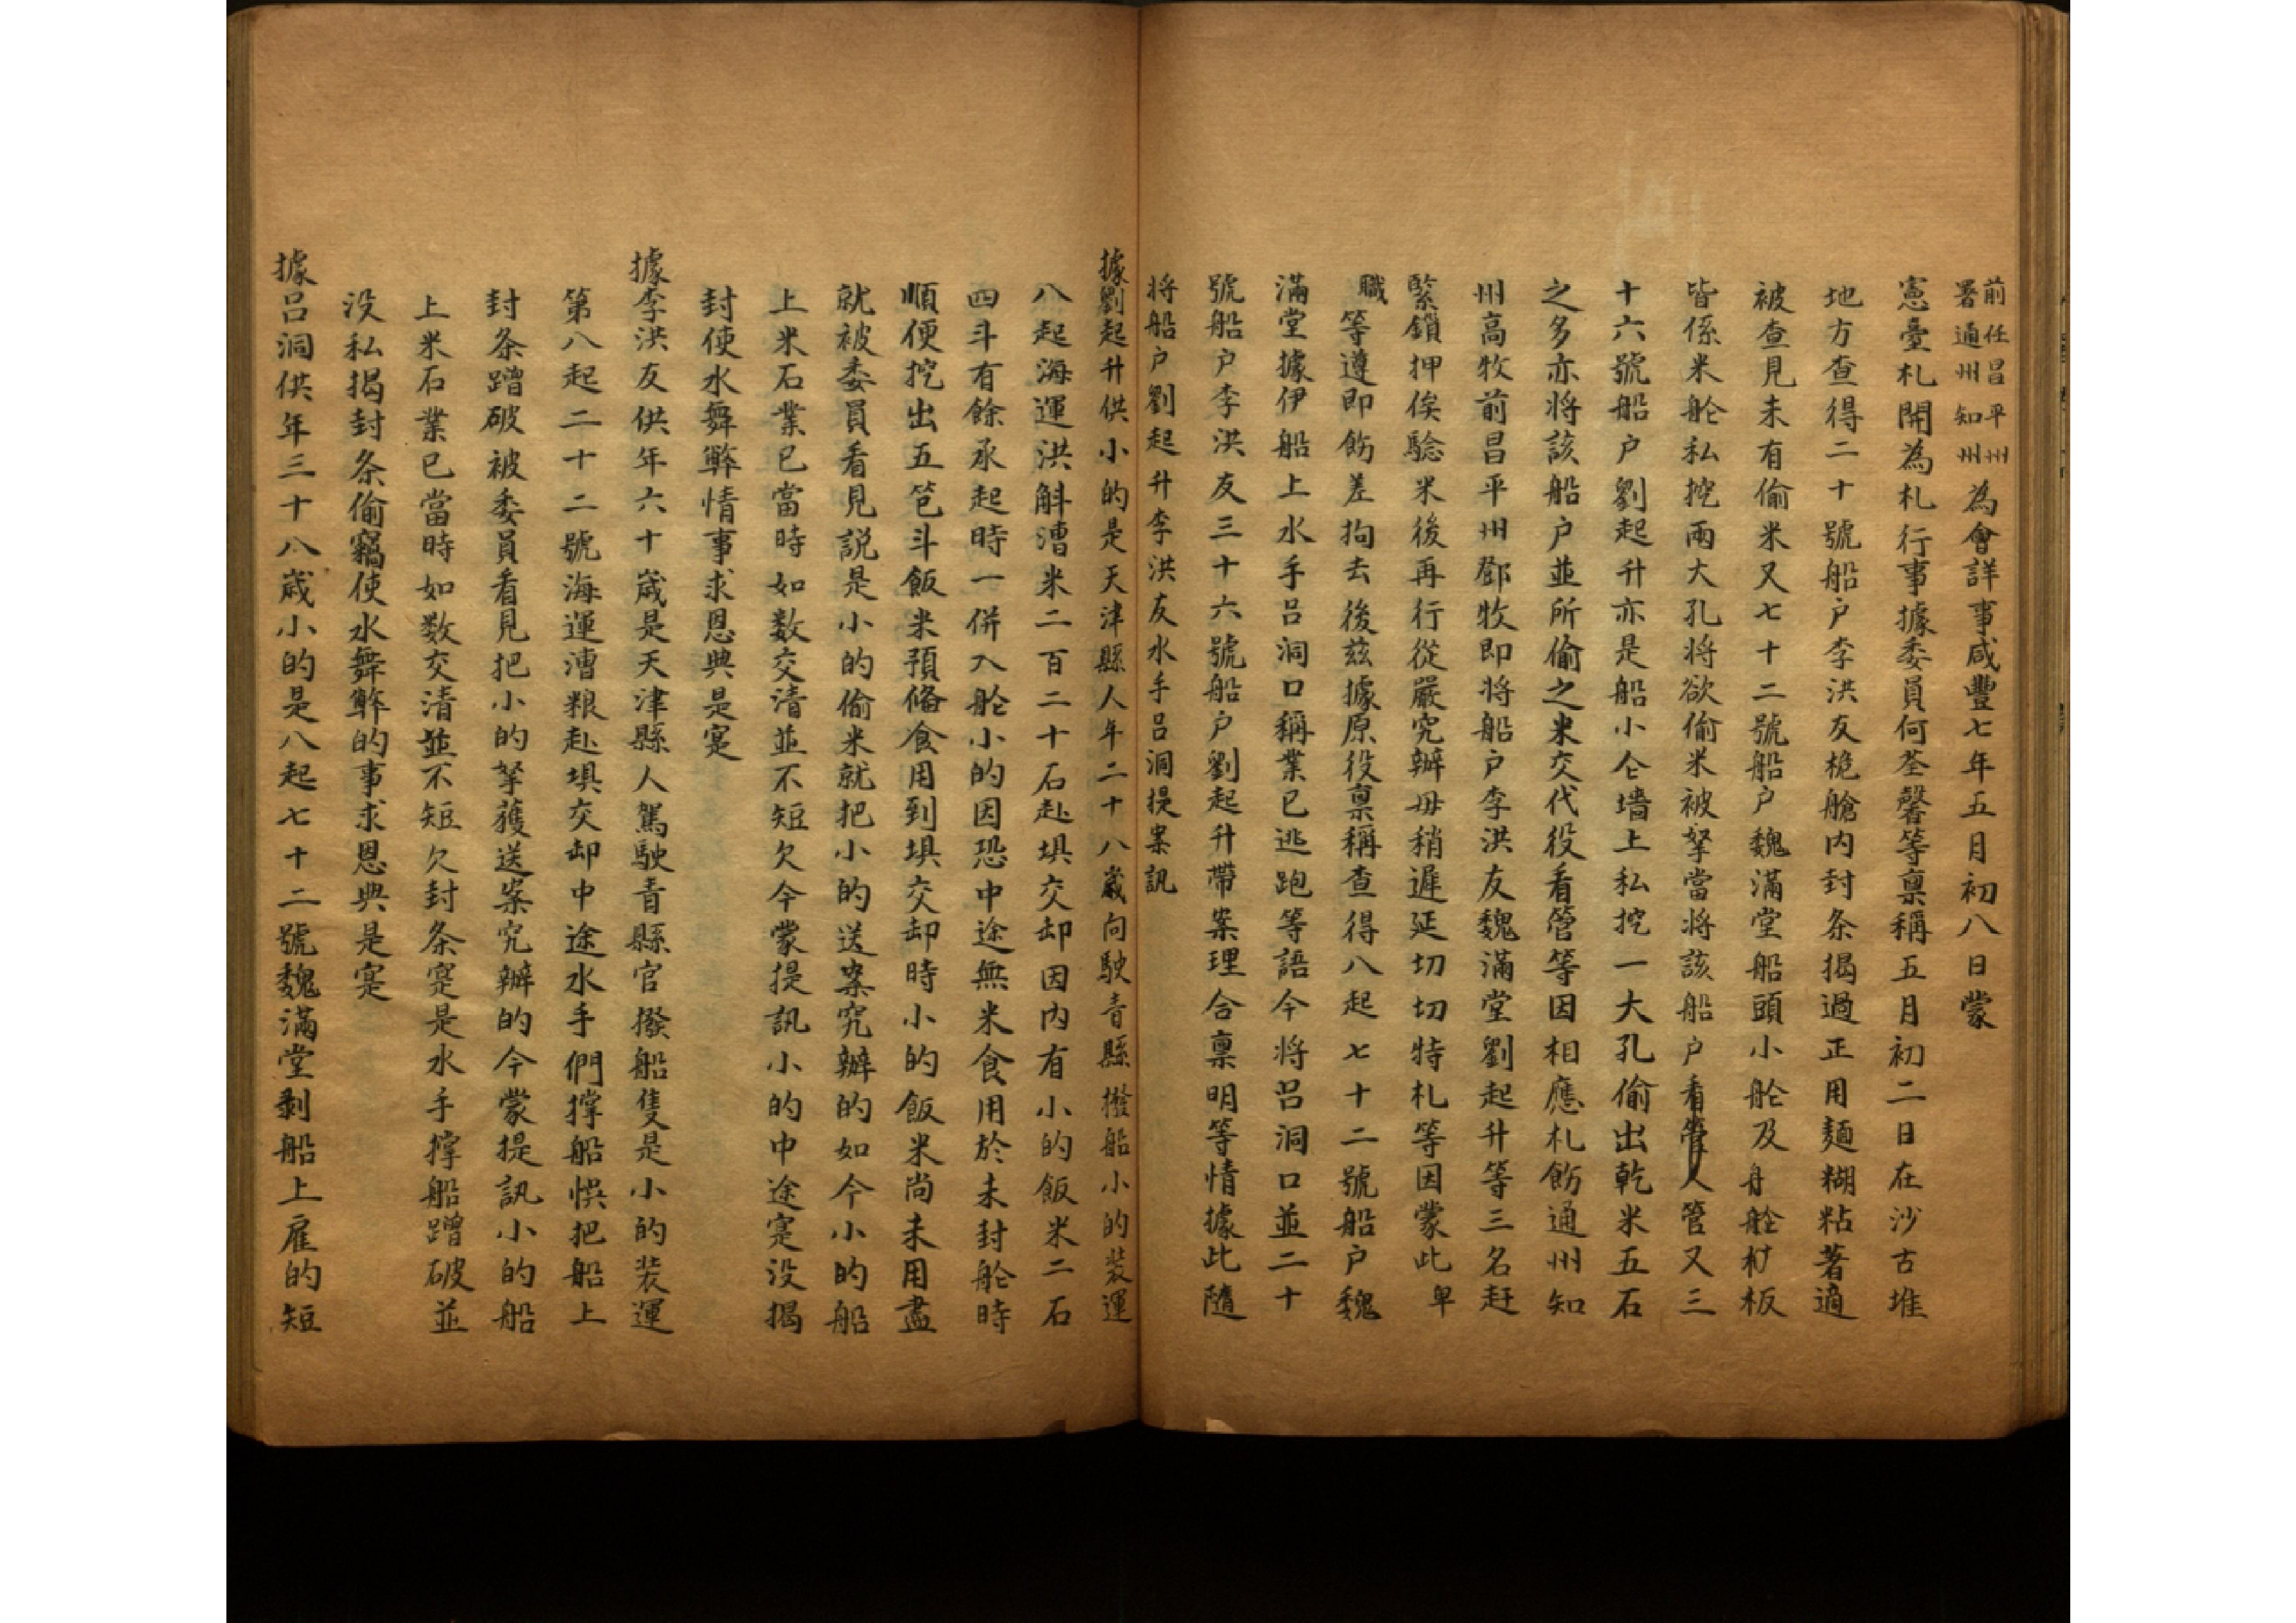 前任昌平州
署通州知州為會詳事咸豐七年五月初八日蒙
憲臺札開為札行事據委員何荃馨等稟稱五月初二日在沙古堆
地方查得二十號船户李洪友桅艙内封条揭過正用麵糊粘著適
被查見未有偷米又七十二號船户魏滿堂船頭小舱及舟艙杦板
皆係米舱私挖兩大孔将欲偷米被拏當将該船户看管人管又三
十六號船户劉起升亦是船小仓墙上私挖一大孔偷出乾米五石
之多亦将該船户並所偷之米交代役看營等因相應札飭通州知
州高牧前昌平州鄧牧即将船户李洪友魏滿堂劉起升等三名赶
緊鎖押俟驗米後再行從嚴究辦毋稍遲延切切特札等因蒙此卑
職等遵即飭差拘去後兹據原役稟稱查得八起七十二號船户魏
滿堂據伊船上水手吕洞口稱業已逃跑等語今将吕洞口並二十
號船户李洪友三十六號船户劉起升帶案理合稟明等情據此隨
将船户劉起升李洪友水手吕洞提案訊
據劉起升供小的是天津縣人年二十八歲向駛青縣撥船小的装運
八起海運洪斛漕米二百二十石赴埧交卸因内有小的飯米二石
四斗有餘承起時一併入舱小的因恐中途無米食用於未封舱時
順便挖出五笆斗飯米預俻食用到埧交卸時小的飯米尚未用盡
就被委員看見説是小的偷米就把小的送案究辦的如今小的船
上米石業已當時如数交清並不短欠今蒙提訊小的中途寔没揭
封使水舞弊情事求恩典是寔
據李洪友供年六十歲是天津縣人駕駛青縣官撥船隻是小的装運
第八起二十二號海運漕粮赴埧交卸中途水手們撑船悮把船上
封条蹭破被委員看見把小的拏獲送案究辦的今蒙提訊小的船
上米石業已當時如数交清並不短欠封条寔是水手撑船蹭破並
没私揭封条偷竊使水舞弊的事求恩典是寔
據吕洞供年三十八歲小的是八起七十二號魏滿堂剥船上雇的短